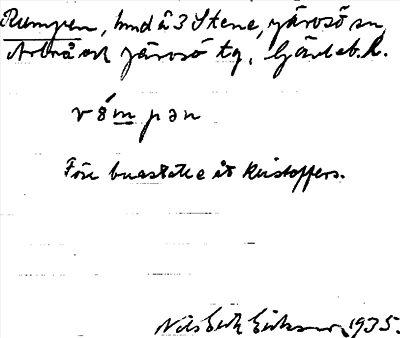 Rumpen, hmd å 3 Stene, Järvsö sn,
Arbrå och Järvsö tg, Gävleb. l.
rømpən
Före buastället åt Kristoffers.
Nils Erik Eriksson 1935.